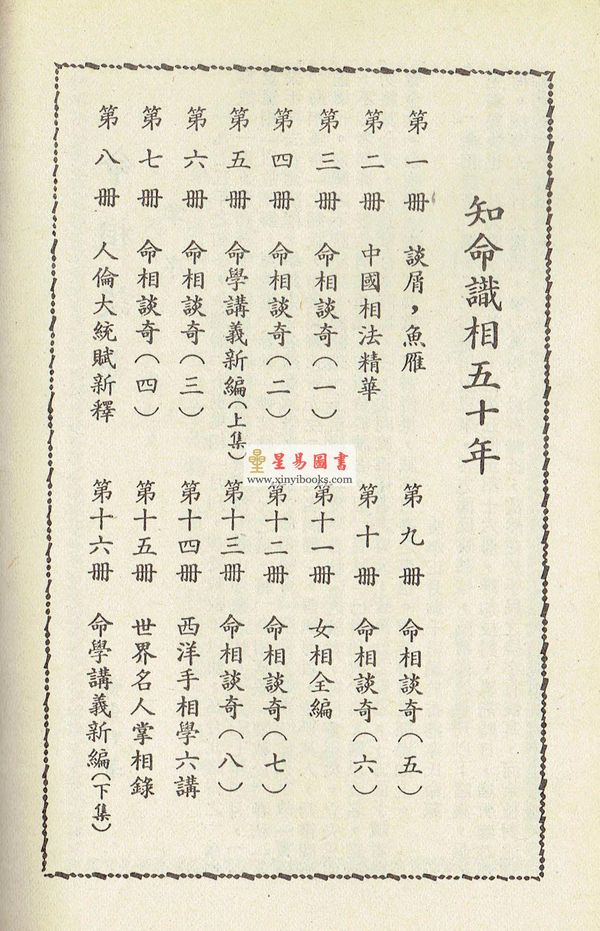 知命識相五十年
第一冊 談屑，魚雁
第二冊 中國相法精華
第三冊 命相談奇（一）
第四冊 命相談奇（二）
第五冊 命學講義新編（上集）
第六冊 命相談奇（三）
第七冊 命相談奇（四）
第八冊 人倫大統賦新釋
第九冊 命相談奇（五）
第十冊 命相談奇（六）
第十一冊 女相全編
第十二冊 命相談奇（七）
第十三冊 命相談奇（八）
第十四冊 西洋手相學六講
第十五冊 世界名人掌相錄
第十六冊 命學講義新編（下集）
星易圖書
www.xinyibooks.com